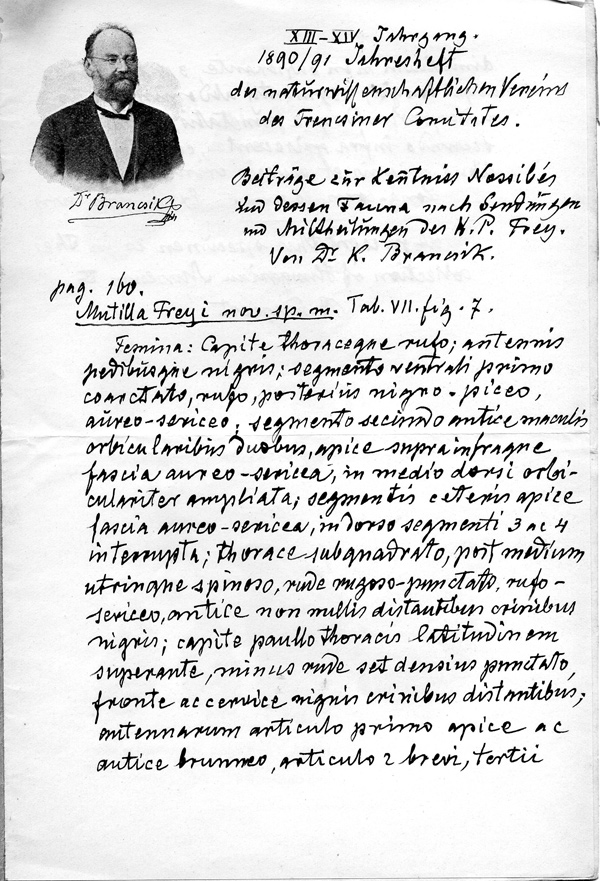 XIII–XIV. Jahrgang.
1890/91 Jahresheft
des naturwissenschaftlichen Vereins
des Trencsiner Comitates.
Dr Brancsik
Beiträge zur Kentniss Nossibés
und dessen Fauna nach Sendungen
und Mittheilungen des H. P. Frey.
Von Dr. K. Brancsik.
pag. 160.
Mutilla Freyi nov. sp. m. Tab. VII. fig. 7.
Femina: Capite thoraceque rufo; antennis
pedibusque nigris; segmento ventrali primo
coarctato, rufo, posterius nigro-piceo,
aureo-sericeo; segmento secundo antice maculis
orbicularibus duobus, apice supra infraque
fascia aureo-sericea, in medio dorsi orbi-
culariter ampliata; segmentis ceteris apice
fascia aureo-sericea, in dorso segmenti 3 ac 4
interrupta; thorace subquadrato, post medium
utrinque spinoso, rude rugoso-punctato, rufo-
sericeo, antice non nullis distantibus crinibus
nigris; capite paullo thoracis latitudinem
superante, minus rude set densius punctato,
fronte ac cervice nigris crinibus distantibus;
antennarum articulo primo apice ac
antice brunneo, articulo 2 brevi, tertii